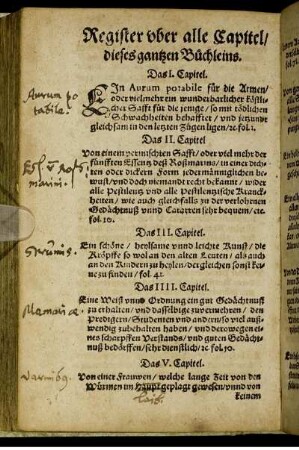 Register vber alle Capitel/
dieses gantzen Büchleins.
Das I. Capitel.
EIn Aurum potabile für die Armen/
oder vielmehr ein wunderbarlicher köstlicher
Safft für die jenige/ so mit tödlichen
Schwachheiten behafftet/ vnd jetzundt
gleichsam in den letzten Zügen ligen/ ꝛc fol. 1.
Aurum po
tabile.
Das II Capitel
Von einem vermischten Safft/ oder viel mehr der
fünfften Essentz deß Roßmarins/ in einer dicken
oder dickern Form jedermänniglichen bewust/
vnd doch niemandt recht bekannt/ wider
alle Pestilentz vnd alle Pestilentzische Kranckheiten/
wie auch gleichfalls zu der verlohrnen
Gedächtnuß vnnd Catarren sehr bequem/ ꝛc.
fol. 10.
marini.
Das III. Capitel.
Ein schöne/ heylsame vnnd leichte Kunst/ die
Kröpffe so wol an den alten Leuten/ als auch
an den Kindern zu heylen/ dergleichen sonst keine
zu finden/ fol. 42.
Das IIII. Capitel.
Eine Weiß vnnd Ordnung ein gut Gedächtnuß
zu erhalten/ vnd dasselbige zuvermehren/ den
Predigern/ Studenten vnd andern/ so viel außwendig
zubehalten haben/ vnd derowegen eines
scharpffen Verstands/ vnd guten Gedächtnuß
bedörffen/ sehr dienstlich/ ꝛc fol. 50.
Memoria
Das V. Capitel.
Von einer Frauwen/ welche lange Zeit von den
Würmen im Haupt geplagt gewesen/ vnnd von
keinem